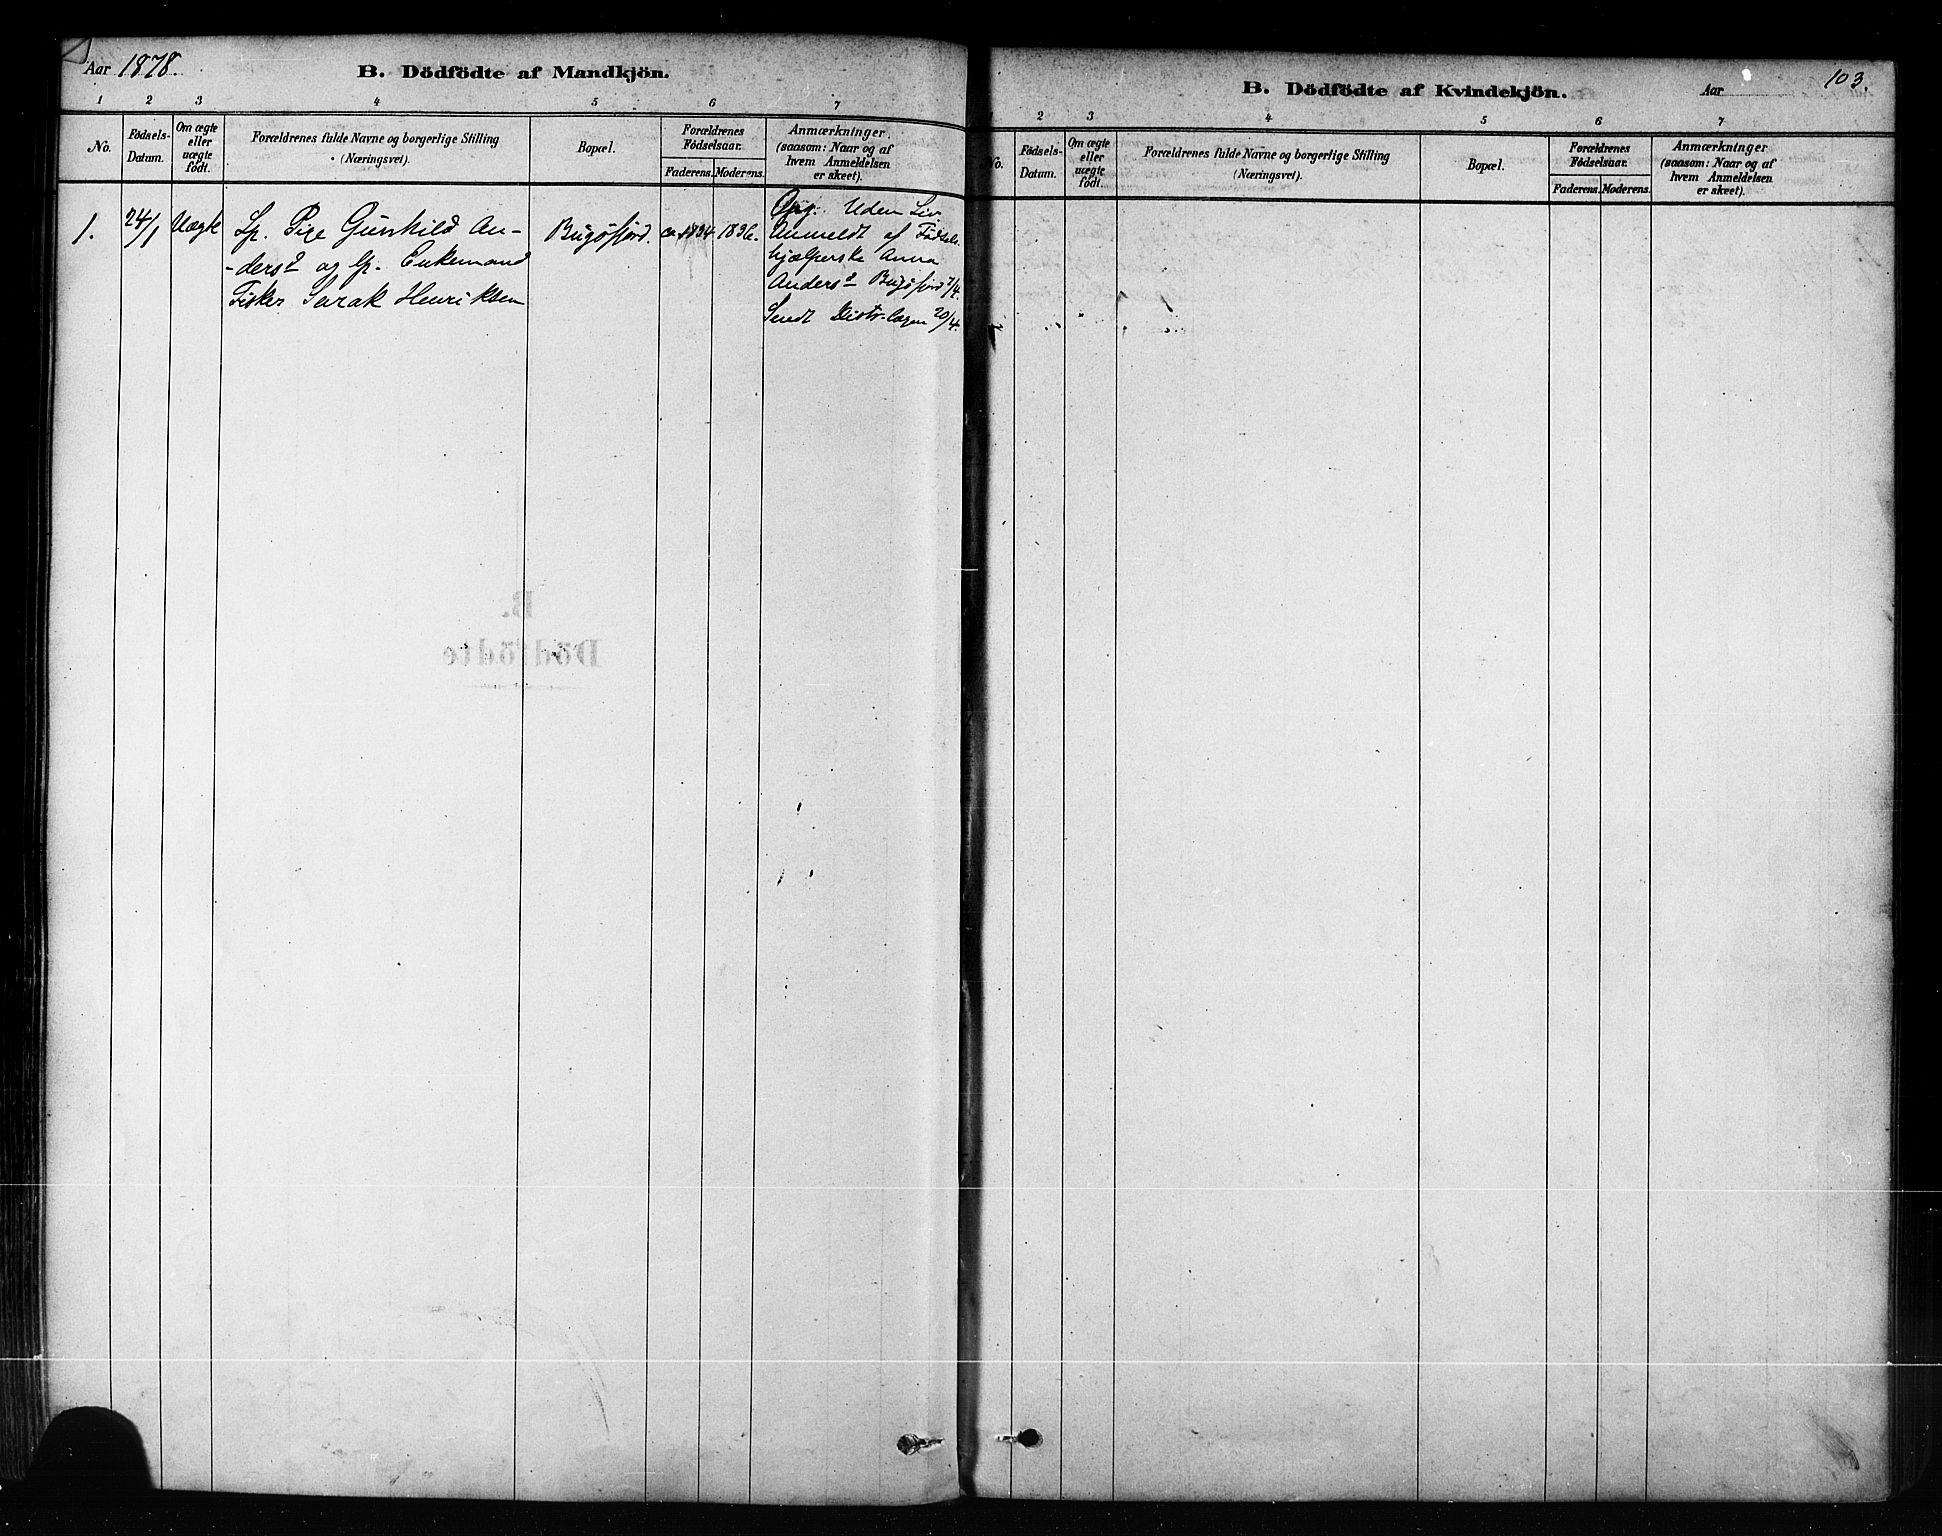 Aar 1878.
B. Dödfödte af Mandkjön.
1 2 3 4 5 6 7
No.
Födsels-
Datum.
Om ægte
eller
uægte
födt.
Forældrenes fulde Navne og borgerlige Stilling
(Næringsvei).
Bopæl.
Forældrenes
Födselsaar.
Faderens. Moderens.
Anmærkninger.
(saasom: Naar og af
hvem Anmeldelsen
er skeet).
1.
24/1
Uægte
Lp. Pige Gunhild An-
-dersd og lp. Enkemand
Fisker Sarak Henriksen
Bugøfjord.
ca. 1834
1836.
Opg. Uden Liv
Anmeldt af Fødsels
hjælperske Anna
Andersd Bugøfjord 7/4.
Sendt Distr-lægen 20/4.
B. Dödfödte af Kvindekjön.
Aar
103.
1 2 3 4 5 6 7
No.
Födsels-
Datum.
Om ægte
eller
uægte
födt.
Forældrenes fulde Navne og borgerlige Stilling
(Næringsvei).
Bopæl.
Forældrenes
Födselsaar.
Faderens. Moderens.
Anmærkninger
(saasom: Naar og af
hvem Anmeldelsen
er skeet).
B.
Dödfödte